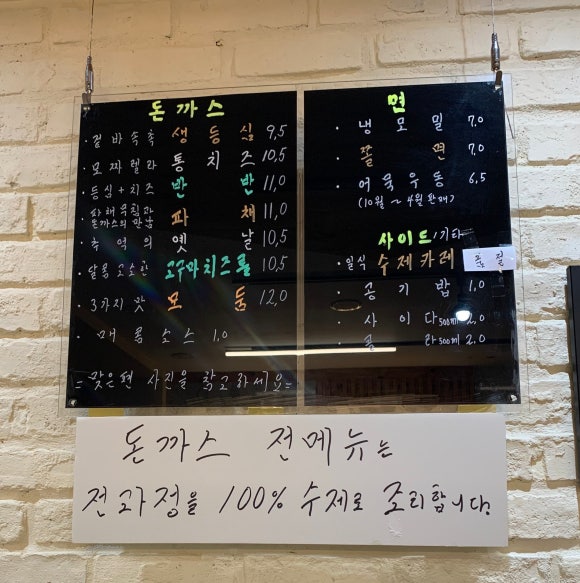 돈까스
· 겉바속촉 생등심 9,5
· 모짜렐라 통치즈 10,5
· 등심+치즈 반반 11,0
· 파채무침과 돈까스의 만남 파채 11,0
· 추억의 옛날 10,5
· 달콤고소한 고구마치즈롤 10,5
· 3가지 맛 모둠 12,0
· 매콤소스 1,0
= 맞은편 사진을 참고하세요=
면
· 냉모밀 7,0
· 쫄면 7,0
· 어묵우동 6,5
(10월 ~ 4월 판매)
사이드/기타
· 일식 수제카레 품절
· 공기밥 1,0
· 사이다500ml 2,0
· 콜라500ml 2,0
돈까스 전메뉴는
전과정을 100% 수제로 조리합니다.